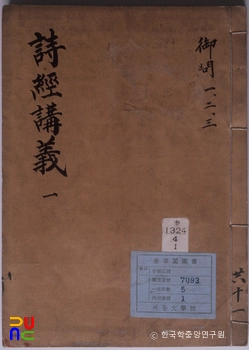 詩經講義 一
御製 一、二、三
1324
4
1
奎章閣圖書
7093
5
1
共十一
© 한국학중앙연구원